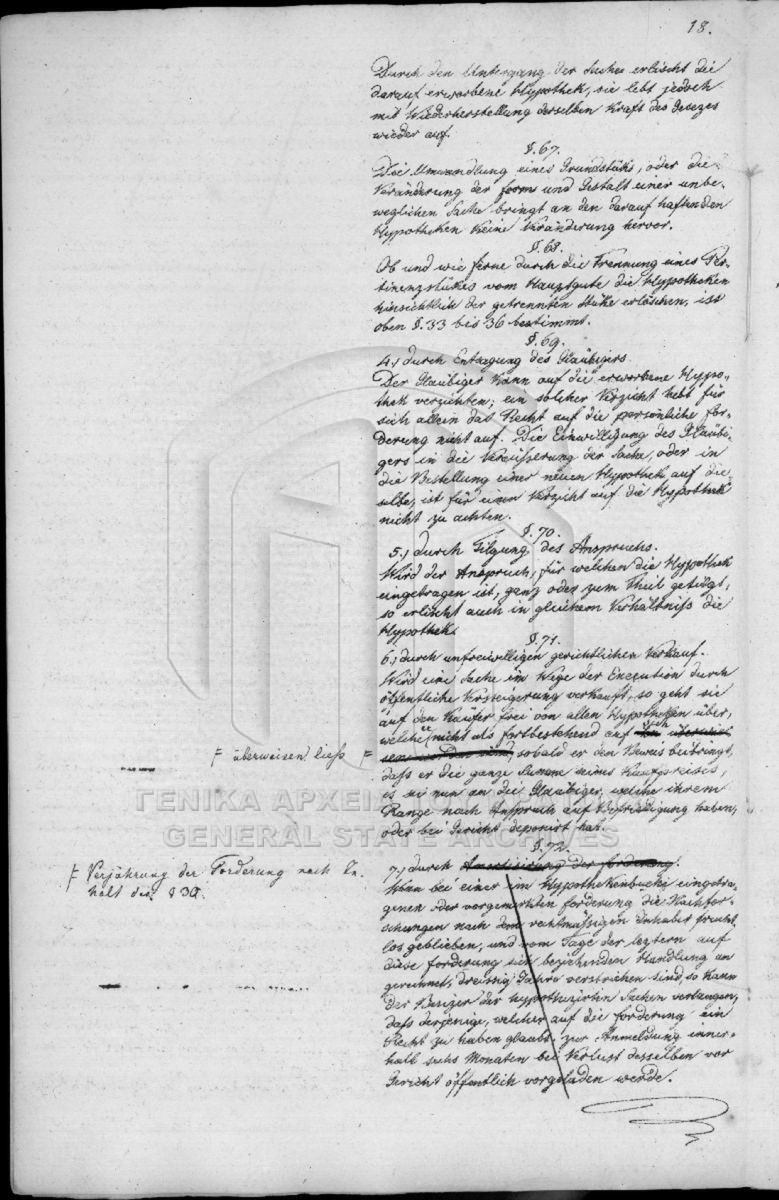 18.
Durch den Untergang der Sache erlischt die
darauf erworbene Hypothek, sie lebt jedoch
mit Wiederherstellung derselben kraft des Gesezes
wieder auf.
§. 67.
Die Umwandlung eines Grundstüks, oder die
Veränderung der form und Gestalt einer unbe-
weglichen Sache bringt an den darauf haftenden
Hypotheken keine Veränderung hervor.
§. 68.
Ob und wie ferne durch die Trennung eines Per-
tinenzstükes vom Hauptgute die Hypotheken
hinsichtlich der getrennten Stüke erlöschen, ist
oben §. 33 bis 36 bestimmt.
§. 69.
4., durch Entsagung des Gläubigers
Der Gläubiger kann auf die erworbene Hypo-
thek verzichten; ein solcher Verzicht hebt für
sich allein das Recht auf die persönliche for-
derung nicht auf. Die Einwilligung des Gläubi-
gers in die Veräusserung der Sache, oder in
die Bestellung einer neuen Hypothek auf die-
selbe, ist für einen Verzicht auf die Hypothek
nicht zu achten.
§. 70.
5., durch Tilgung des Anspruchs.
Wird der Anspruch, für welchen die Hypothek
eingetragen ist, ganz oder zum Theil getilgt,
so erlischt auch in gleichem Verhältniss die
Hypothek.
§. 71.
6., durch unfreiwilligen gerichtlichen Verkauf.
Wird eine Sache im Wege der Execution durch
öffentliche Versteigerung verkauft, so geht sie
auf den Käufer frei von allen Hypotheken über,
welche er nicht als fortbestehend auf sich
sobald er den Beweis beibringt,
≠ überweisen liess ≠
dass er die ganze Summe seines Kaufspreises,
es sei nun an die Gläubiger, welche ihrem
Range nach Anspruch auf Befriedigung haben,
oder bei Gericht deponirt hat.
§. 72.
7., durch Amortisirung der forderung.
≠ Verjährung der Forderung nach In-
halt des §
Wenn bei einer im Hypothekenbuche eingetra-
genen oder vorgemerkten forderung die Nachfor-
schungen nach dem rechtmässigen Inhaber frucht-
los geblieben, und vom Tage der leztern auf
diese forderung sich beziehenden Handlung an
gerechnet, dreissig Jahre verstrichen sind, so kann
der Besizer der hypothezirten Sachen verlangen,
dass derjenige, welcher auf die forderung ein
Recht zu haben glaubt, zur Anmeldung inner-
halb sechs Monaten bei Verlust desselben vor
Gericht öffentlich vorgeladen werde.
ΓΕΝΙΚΑ ΑΡΧΕΙΑ ΤΟΥ
GENERAL STATE ARCHIVES